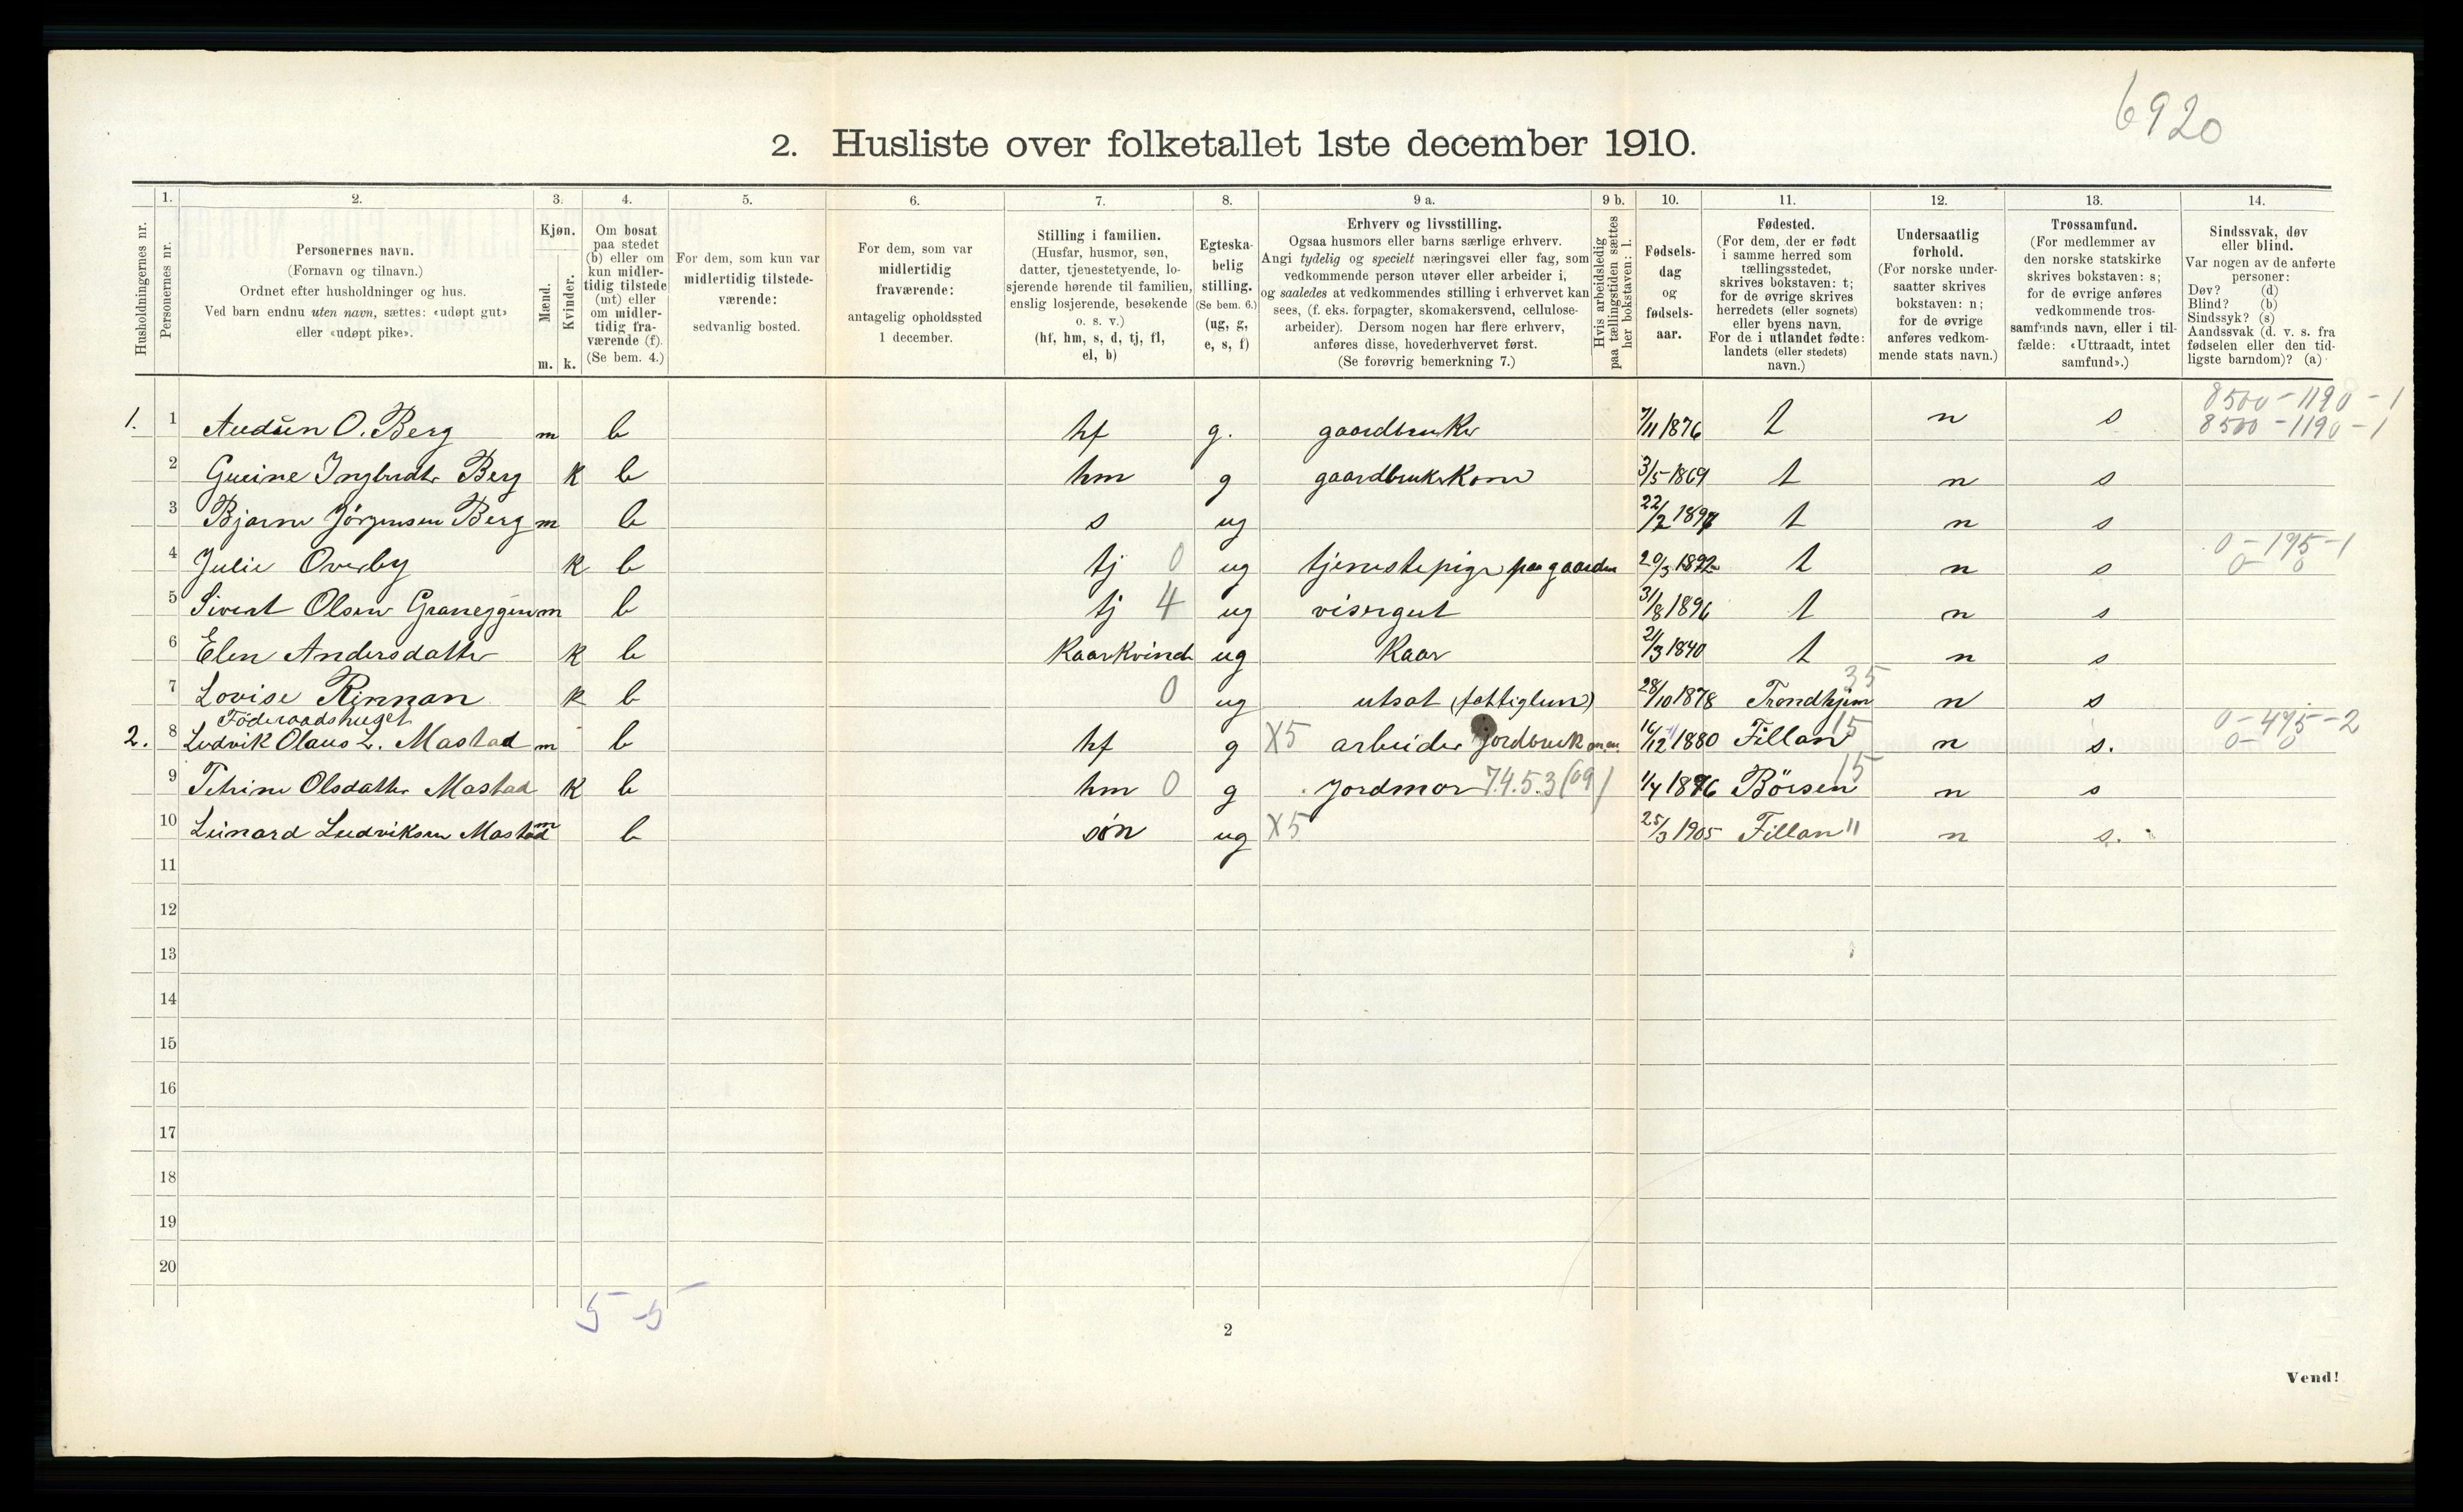 6920
2. Husliste over folketallet 1ste december 1910.
Husholdningernes nr.
1.
Personernes nr.
2.
Personernes navn.
(Fornavn og tilnavn.)
Ordnet efter husholdninger og hus.
Ved barn endnu uten navn, sættes: «udøpt gut»
eller «udøpt pike».
3.
Kjøn.
Mænd.
Kvinder.
m. k.
4.
Om bosat
paa stedet
(b) eller om
kun midler-
tidig tilstede
(mt) eller
om midler-
tidig fra-
værende (f).
(Se bem. 4.)
5.
For dem, som kun var
midlertidig tilstede-
værende:
sedvanlig bosted.
6.
For dem, som var
midlertidig
fraværende:
antagelig opholdssted
1 december.
7.
Stilling i familien.
(Husfar, husmor, søn,
datter, tjenestetyende, lo-
sjerende hørende til familien,
enslig losjerende, besøkende
o. s. v.)
(hf, hm, s, d, tj, fl,
el, b)
8.
Egteska-
belig
stilling.
(Se bem. 6.)
(ug, g,
e, s, f)
9 a.
Erhverv og livsstilling.
Ogsaa husmors eller barns særlige erhverv.
Angi tydelig og specielt næringsvei eller fag, som
vedkommende person utøver eller arbeider i,
og saaledes at vedkommendes stilling i erhvervet kan
sees, (f. eks. forpagter, skomakersvend, cellulose-
arbeider). Dersom nogen har flere erhverv,
anføres disse, hovederhvervet først.
(Se forøvrig bemerkning 7.)
9 b.
Hvis arbeidsledig
paa tællingstiden sættes
her bokstaven: l.
10.
Fødsels-
dag
og
fødsels-
aar.
11.
Fødested.
(For dem, der er født
i samme herred som
tællingsstedet,
skrives bokstaven: t;
for de øvrige skrives
herredets (eller sognets)
eller byens navn.
For de i utlandet fødte:
landets (eller stedets)
navn.)
12.
Undersaatlig
forhold.
(For norske under-
saatter skrives
bokstaven: n;
for de øvrige
anføres vedkom-
mende stats navn.)
13.
Trossamfund.
(For medlemmer av
den norske statskirke
skrives bokstaven: s;
for de øvrige anføres
vedkommende tros-
samfunds navn, eller i til-
fælde: «Uttraadt, intet
samfund».)
14.
Sindssvak, døv
eller blind.
Var nogen av de anførte
personer:
Døv? (d)
Blind? (b)
Sindssyk? (s)
Aandssvak (d. v. s. fra
fødselen eller den tid-
ligste barndom)? (a)
8500-1190-1
1. 1 Audŭn O. Berg m b hf g. gaardbruker 7/11 1876 t n s 8500-1190-1
2 Guine Ingbrdtr Berg k b hm g gaardbrukerkone 3/5 1869 t n s
3 Bjarne Jörgensen Berg m b s ug 22/2 1897 t n s
0-195-1
4 Julie Overby k b tj 0 ug tjenestepige paa gaarden 20/3 1892 t n s 0-0
5 Sivert Olsen Graneggen m b tj 4 ug visergut 31/8 1896 t n s
6 Elen Andersdatter k b Kaarkvinde ug Kaar 21/3 1840 t n s
35
7 Lovise Rinnan k b 0 ug utsat (fattiglem) 28/10 1878 Trondhjem n s
Föderaadshuset
0-495-2
2. 8 Ludvik Olaus L. Mastad m b hf g X5 arbeider jordbruk 16/12 1880 Fillan 15 n s. 0-0
9 Petrine Olsdatter Mastad k b hm 0 g Jordmor 7.4.5.3 (09) 1/4 1876 Börsen 15 n s
10 Leinard Ludviksen Mastad m b søn ug X5 25/3 1905 Fillan " n s.
11
12
13
14
15
16
17
18
19
20
5-5
2
Vend!